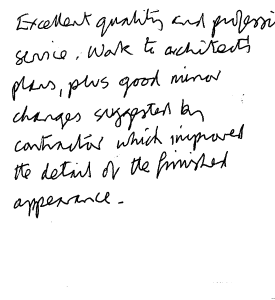 Excellent quality and professi
service. Work to architects
plans, plus good minor
changes suggested by
contractor which improved
the detail of the finished
appearance.